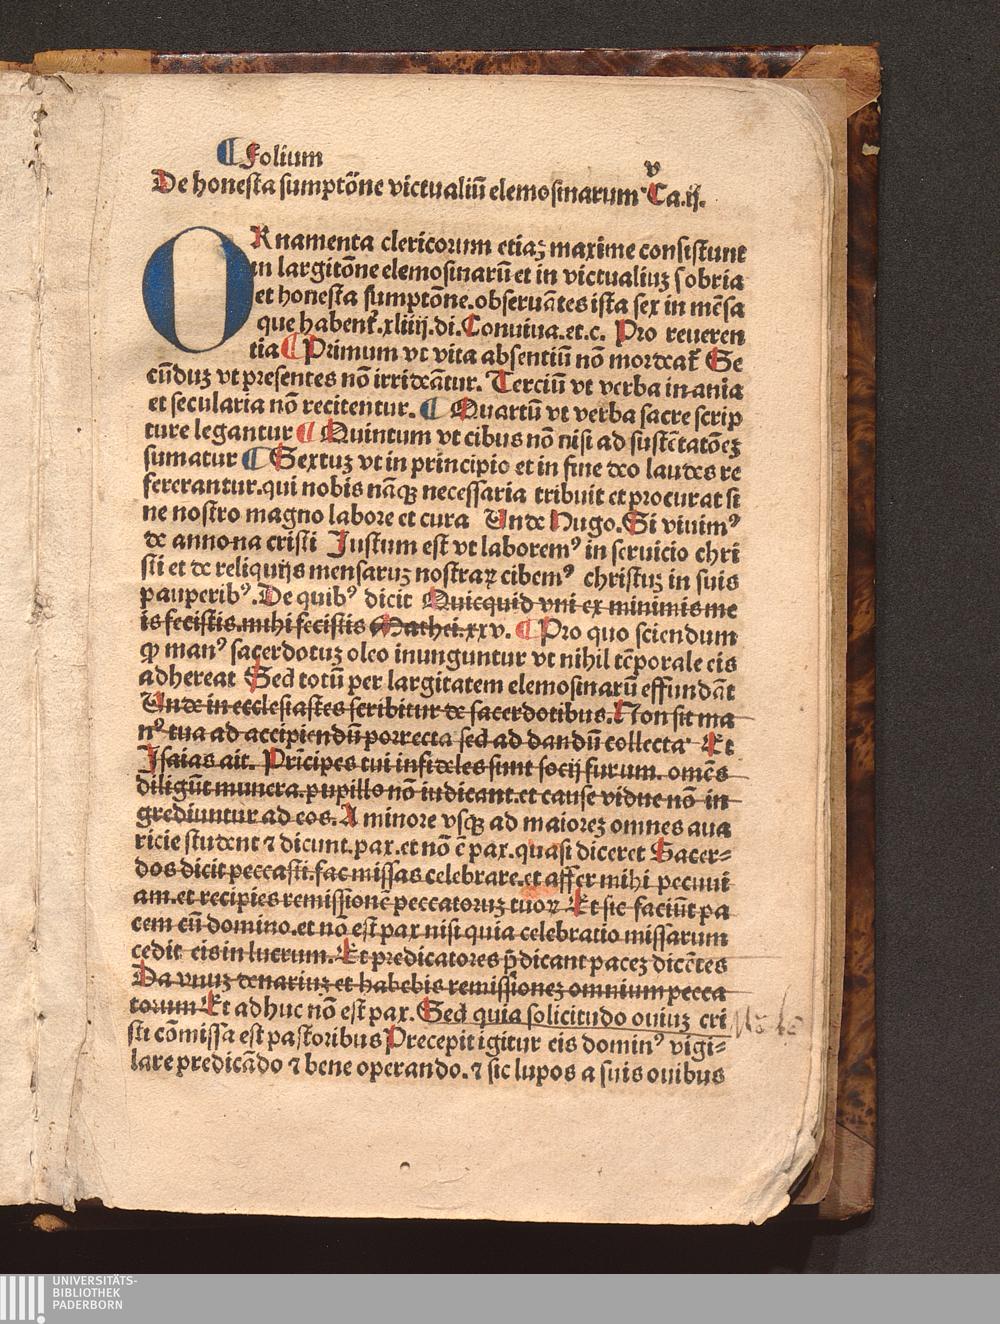 ¶ Folium v
De honesta sumptōne victualiū elemosinarum Ca.ij.
ORnamenta clericorum etiaꝫ maxime consistunt
in largitōne elemosinarū et in victualiuꝫ sobria
et honesta sumptōne.obseruātes ista sex in mēsa
que habent᷑.xliiij.di.Conuiua.et.c. Pro reueren
tia ¶ Primum vt vita absentiū nō mordeat᷑ Se
cūduꝫ vt presentes nō irrideātur. Terciū vt verba inania
et secularia nō recitentur. ¶ Quartū vt verba sacre scrip
ture legantur ¶ Quintum vt cibus nō nisi ad sustētatōeꝫ
sumatur ¶ Sextuꝫ vt in principio et in fine deo laudes re
fererantur.qui nobis nāqꝫ necessaria tribuit et procurat si
ne nostro magno labore et cura Unde Hugo.Si viuimꝰ
de annona cristi Iustum est vt laboremꝰ in seruicio chri
sti et de reliquijs mensaruꝫ nostraꝝ cibemꝰ christuꝫ in suis
pauperibꝰ.De quibꝰ dicit Quicquid vni ex minimis me
is fecistis.mihi fecistis Mathei.xxv. ¶ Pro quo sciendum
ꝙ manꝰ sacerdotuꝫ oleo inunguntur vt nihil tēporale eis
adhereat Sed totū per largitatem elemosinarū effundāt
Unde in ecclesiastes scribitur de sacerdotibus.Non sit ma
nꝰ tua ad accipiendū porrecta sed ad dandū collecta Et
Isaias ait. Prīcipes tui infideles sunt socij furum. omēs
diligūt munera.pupillo nō iudicant.et cause vidue nō in
grediuntur ad eos.A minore vsqꝫ ad maioreꝫ omnes aua
ricie student ⁊ dicunt.pax.et nō ē pax.quasi diceret Sacer⸗
dos dicit peccasti.fac missas celebrare.et affer mihi pecuni
am.et recipies remissionē peccatoruꝫ tuoꝝ Et sic faciūt pa
cem cū domino.et nō est pax nisi quia celebratio missarum
cedit eis in lucrum. Et predicatores p̄dicant paceꝫ dicētes
Da vnuꝫ denariuꝫ et habebis remissioneꝫ omnium pecca
torum Et adhuc nō est pax. Sed quia solicitudo ouiuꝫ cri
sti cōmissa est pastoribus Precepit igitur eis dominꝰ vigi⸗
lare predicādo ⁊ bene operando.⁊ sic lupos a suis ouibus
UNIVERSITÄTS-
BIBLIOTHEK
PADERBORN